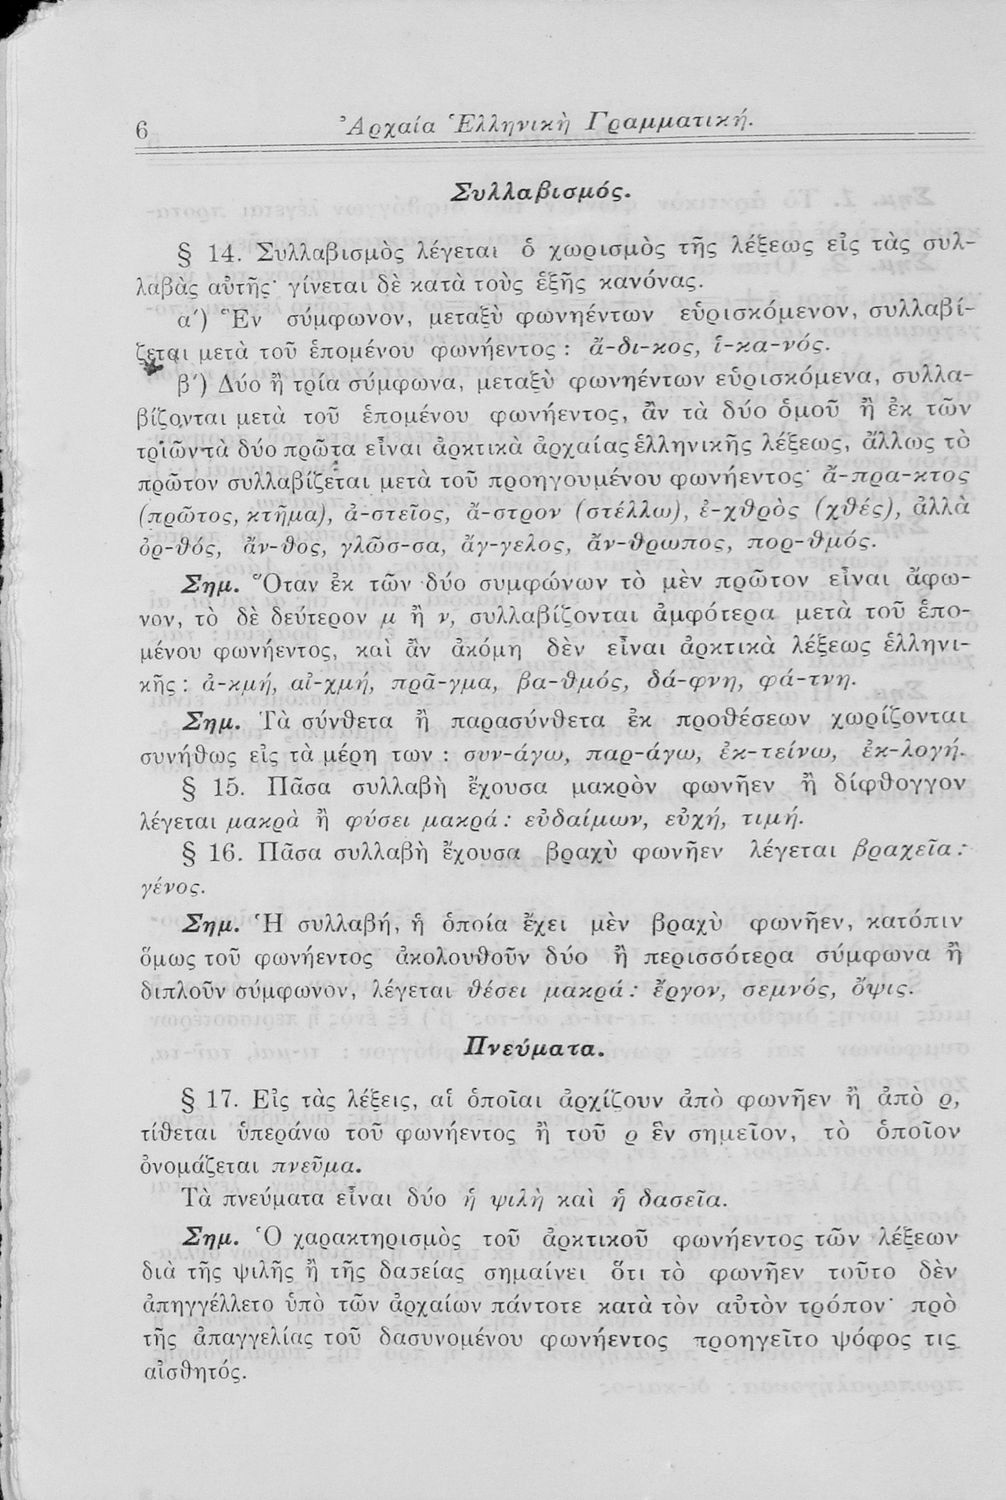 6
Ἀρχαία Ἑλληνικὴ Γραμματική.
Συλλαβισμός.
§ 14. Συλλαβισμὸς λέγεται ὁ χωρισμὸς τῆς λέξεως εἰς τὰς συλ-
λαβὰς αὐτῆς· γίνεται δὲ κατὰ τοὺς ἑξῆς κανόνας.
α΄) Ἓν σύμφωνον, μεταξὺ φωνηέντων εὑρισκόμενον, συλλαβί-
ζεται μετὰ τοῦ ἑπομένου φωνήεντος : ἄ-δι-κος, ἱ-κα-νός.
β΄) Δύο ἢ τρία σύμφωνα, μεταξὺ φωνηέντων εὑρισκόμενα, συλλα-
βίζονται μετὰ τοῦ ἑπομένου φωνήεντος, ἂν τὰ δύο ὁμοῦ ἢ ἐκ τῶν
τριῶν τὰ δύο πρῶτα εἶναι ἀρκτικὰ ἀρχαίας ἑλληνικῆς λέξεως, ἄλλως τὸ
πρῶτον συλλαβίζεται μετὰ τοῦ προηγουμένου φωνήεντος· ἄ-πρα-κτος
(πρῶτος, κτῆμα), ἀ-στεῖος, ἄ-στρον (στέλλω), ἐ-χθρὸς (χθές), ἀλλὰ
ὀρ-θός, ἄν-θος, γλῶσ-σα, ἄγ-γελος, ἄν-θρωπος, πορ-θμός.
Σημ. Ὅταν ἐκ τῶν δύο συμφώνων τὸ μὲν πρῶτον εἶναι ἄφω-
νον, τὸ δὲ δεύτερον μ ἢ ν, συλλαβίζονται ἀμφότερα μετὰ τοῦ ἑπο-
μένου φωνήεντος, καὶ ἂν ἀκόμη δὲν εἶναι ἀρκτικὰ λέξεως ἑλληνι-
κῆς : ἀ-κμή, αἰ-χμή, πρᾶ-γμα, βα-θμός, δά-φνη, φά-τνη.
Σημ. Τὰ σύνθετα ἢ παρασύνθετα ἐκ προθέσεων χωρίζονται
συνήθως εἰς τὰ μέρη των : συν-άγω, παρ-άγω, ἐκ-τείνω, ἐκ-λογή.
§ 15. Πᾶσα συλλαβὴ ἔχουσα μακρὸν φωνῆεν ἢ δίφθογγον
λέγεται μακρὰ ἢ φύσει μακρά : εὐδαίμων, εὐχή, τιμή.
§ 16. Πᾶσα συλλαβὴ ἔχουσα βραχὺ φωνῆεν λέγεται βραχεῖα :
γένος.
Σημ. Ἡ συλλαβή, ἡ ὁποία ἔχει μὲν βραχὺ φωνῆεν, κατόπιν
ὅμως τοῦ φωνήεντος ἀκολουθοῦν δύο ἢ περισσότερα σύμφωνα ἢ
διπλοῦν σύμφωνον, λέγεται θέσει μακρά : ἔργον, σεμνός, ὄψις.
Πνεύματα.
§ 17. Εἰς τὰς λέξεις, αἱ ὁποῖαι ἀρχίζουν ἀπὸ φωνῆεν ἢ ἀπὸ ρ,
τίθεται ὑπεράνω τοῦ φωνήεντος ἢ τοῦ ρ ἓν σημεῖον, τὸ ὁποῖον
ὀνομάζεται πνεῦμα.
Τὰ πνεύματα εἶναι δύο ἡ ψιλὴ καὶ ἡ δασεῖα.
Σημ. Ὁ χαρακτηρισμὸς τοῦ ἀρκτικοῦ φωνήεντος τῶν λέξεων
διὰ τῆς ψιλῆς ἢ τῆς δασείας σημαίνει ὅτι τὸ φωνῆεν τοῦτο δὲν
ἀπηγγέλλετο ὑπὸ τῶν ἀρχαίων πάντοτε κατὰ τὸν αὐτὸν τρόπον· πρὸ
τῆς ἀπαγγελίας τοῦ δασυνομένου φωνήεντος προηγεῖτο ψόφος τις
αἰσθητός.